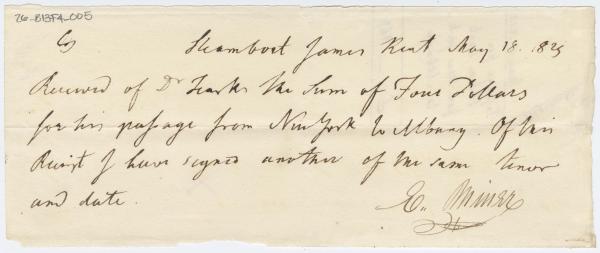 26-B13F4-005
Steamboat James Kent May 18. 1825
Received of Dr the Sum of Four Dollars
for his passage from New York to Albany. Of this
Receipt I have signed another of the same tenor
and date.
E. Miner